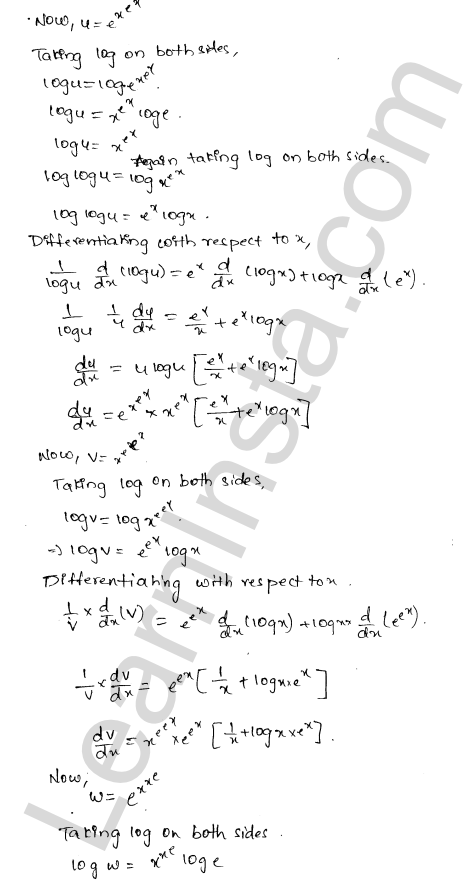 . Now, u = e^{x^{e^x}}
Taking log on both sides,
log u = log e^{x^{e^x}}.
log u = x^{e^x} log e.
log u = x^{e^x}
Again taking log on both sides.
log log u = log x^{e^x}
log log u = e^x log x.
Differentiating with respect to x,
1/log u d/dx (log u) = e^x d/dx (log x) + log x d/dx (e^x).
1/log u 1/u du/dx = e^x/x + e^x log x
du/dx = u log u [e^x/x + e^x log x]
du/dx = e^{x^{e^x}} × x^{e^x} [e^x/x + e^x log x]
Now, v = x^{e^{e^x}}
Taking log on both sides,
log v = log x^{e^{e^x}}.
⇒ log v = e^{e^x} log x
Differentiating with respect to x.
1/v × d/dx (v) = e^{e^x} d/dx (log x) + log x × d/dx (e^{e^x}).
1/v × dv/dx = e^{e^x} [1/x + log x × e^x]
dv/dx = x^{e^{e^x}} × e^{e^x} [1/x + log x × e^x].
Now,
w = e^{x^{x^e}}
Taking log on both sides.
log w = x^{x^e} log e
LearnInsta.com